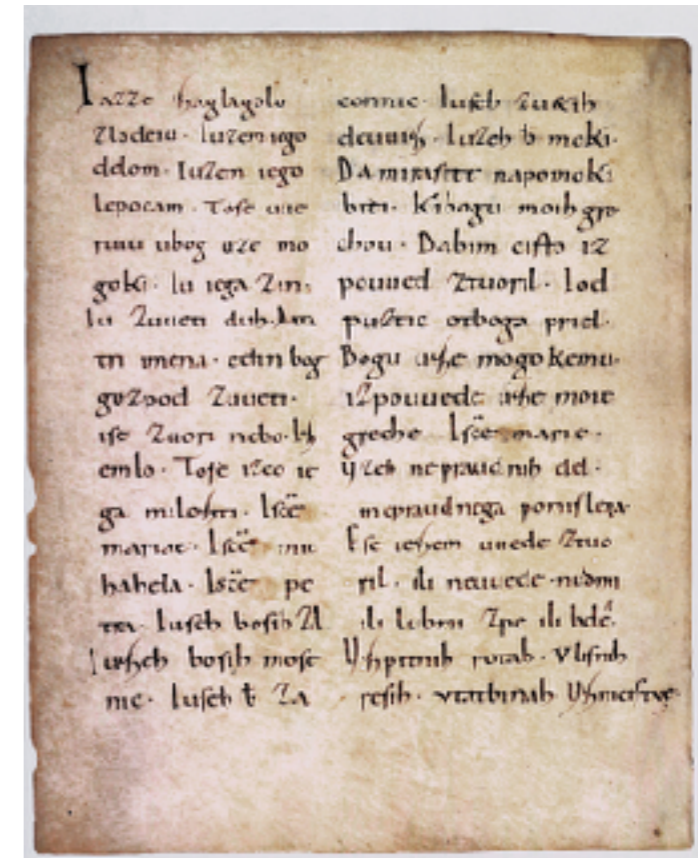 Iazze zaglagolo
Zlodeiu. Iuzem iego
delom. Iuzen iego
lepocam. Tose uue
ruiu ubog uze mo
goki. Iu iega Zin.
Iu Zuueti duh.
tri imena. edin bog
gozpod Zuueti.
ise Zuori nebo. Iz
emlo. Tose izco ie
ga milosti. Isce
marie. Isce mi
hahela. Isce pe
tra. Iuseh bosih Zl
Iuseh bosih mose
nic. Iuseh b Za
connic. Iuseh zuetih
deuuiz. Iuzeh b moki.
Da mirasite napomoki
biti. Kibogu moih gre
chou. Dabim cisto iz
pouued ztuoril. Iod
puztic otboga priel.
Bogu uze mogokemu.
izpouuede uze moie
greche. Isce marie.
uzeh nepraudnih del.
inepraudnega pomislena.
Ese iezem uuede ztuo
ril. ili neuuede. nudmi
ili lubmi Zpe ili bde.
Uzpitnih rotah. Vlisnih
resih. vtatbinah Uzmicstue.